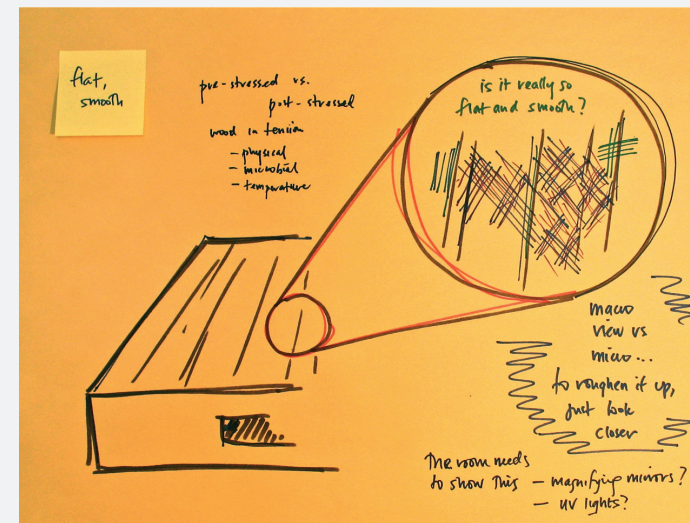 flat,
smooth
pre-stressed vs.
post-stressed
wood in tension
- physical
- microbial
- temperature
is it really so
flat and smooth?
macro
view vs
micro...
to roughen it up,
just look
closer
The room needs
to show this - magnifying mirrors?
- UV lights?